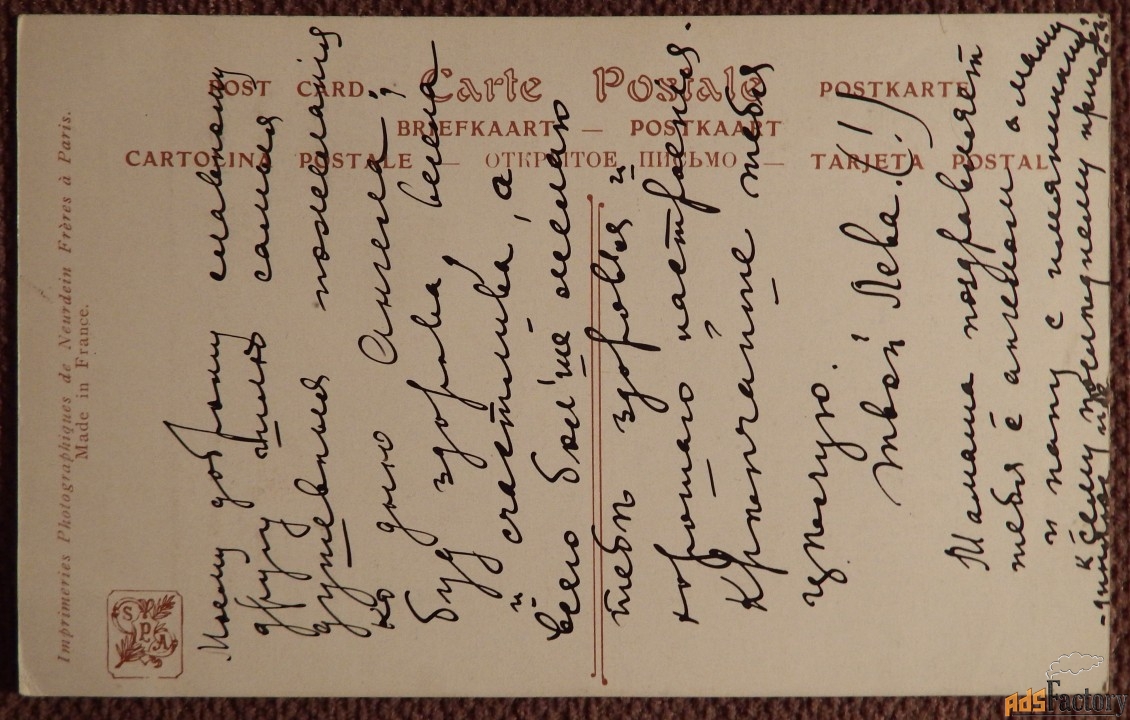 POST CARD Carte Postale POSTKARTE
BRIEFKAART — POSTKAART
CARTOLINA POSTALE — ОТКРЫТОЕ ПИСЬМО — TARJETA POSTAL
Imprimeries Photographiques de Neurdein Frères à Paris.
Made in France.
S P P A
Моему доброму славному
другу милю самыя
душевныя пожеланія
ко дню Ангела!
Будь здорова весела
и счастлива, а
всего больше желаю
тебѣ здоровья и
хорошаго настроенія.
Крѣпчайше тебя
цѣлую.
твой Лева.(!)
Мамаша поздравляетъ
тебя с ангеломъ а маму
и папу с имянинницей,
к сему послѣднему
ADSFactory